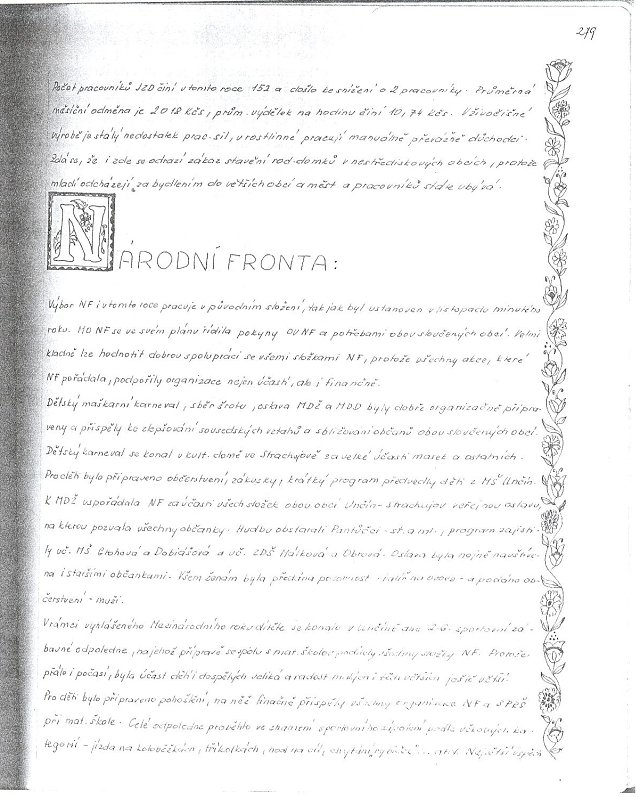 279
Počet pracovníků JZD činí v tomto roce 152 a došlo ke snížení o 2 pracovníky. Průměrná
měsíční odměna je 2018 Kčs, prům. výdělek na hodinu činí 10,74 Kčs. V živočišné
výrobě je stálý nedostatek prac. sil, v rostlinné pracují manuálně převážně důchodci.
Zdá se, že i zde se odrazí zákaz stavění rod. domků v nestřediskových obcích, protože
mladí odcházejí za bydlením do větších obcí a měst a pracovníků stále ubývá.
NÁRODNÍ FRONTA:
Výbor NF i v tomto roce pracuje v původním složení, tak jak byl ustanoven v listopadu minulého
roku. MO NF se ve svém plánu řídila pokyny OV NF a potřebami obou sloučených obcí. Velmi
kladně lze hodnotit dobrou spolupráci se všemi složkami NF, protože všechny akce, které
NF pořádala, podpořily organizace nejen účastí, ale i finančně.
Dětský maškarní karneval, sběr šrotu, oslava MDŽ a MDD byly dobře organizačně připra-
veny a přispěly ke zlepšování sousedských vztahů a sbližování občanů obou sloučených obcí.
Dětský karneval se konal v kult. domě ve Strachujově za velké účasti masek a ostatních.
Pro děti bylo připraveno občerstvení, zákusky, krátký program předvedly děti z MŠ Unčín.
K MDŽ uspořádala NF za účasti všech složek obou obcí Unčín - Strachujov veřejnou oslavu,
na kterou pozvala všechny občanky. Hudbu obstarali Pantůčci - st. a ml., program zajisti-
ly uč. MŠ a Dobiášová a uč. ZDŠ Málková a Obrová. Oslava byla hojně navštíve-
na i staršími občankami. Všem ženám byla předána pozornost - a podáno ob-
čerstvení - muži.
V rámci vyhlášeného Mezinárodního roku dítěte se konalo v Unčíně dne 2.6. sportovní zá-
bavné odpoledne, na jehož přípravě se spolu s mat. školou podílely všechny složky NF. Protože
přálo i počasí, byla účast dětí i dospělých veliká a radost ještě větší.
Pro děti bylo připraveno pohoštění, na něž finančně přispěly všechny organizace NF a SRPŠ
při mat. škole. Celé odpoledne proběhlo ve znamení sportovního zápolení podle věkových ka-
tegorií - jízda na koloběžkách, tříkolkách, hod na cíl, chytání rybiček ... atd. Největší úspěch